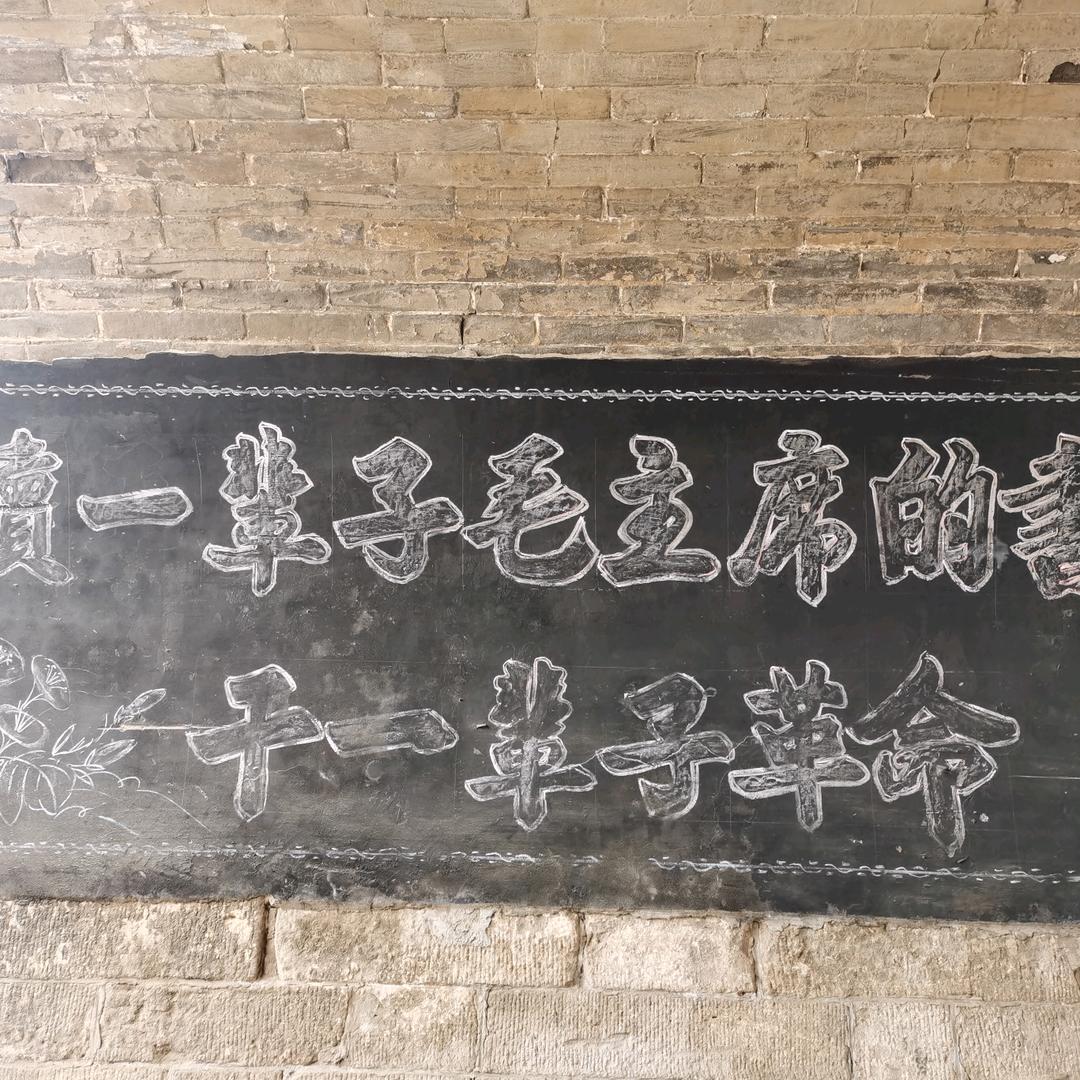 讀一輩子毛主席的書
干一輩子革命